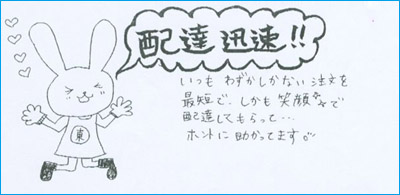 配達迅速!!
いつも わずかしかない注文を
最短で、しかも笑顔で
配達してもらって…
ホントに助かってます。
東